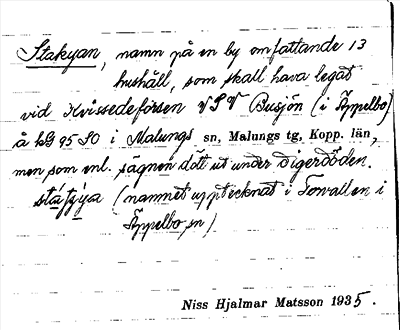 Stakyan, namn på en by omfattande 13
hushåll, som skall hava legat
vid Kvissedeforsen VSV Busjön (i Äppelbo)
å kB 95 SO i Malungs sn, Malungs tg. Kopp. län,
men som enl. sägnen dött ut under digerdöden.
(namnet upptecknat i Torvallen i
Äppelbo sn).
Niss Hjalmar Matsson 1935.